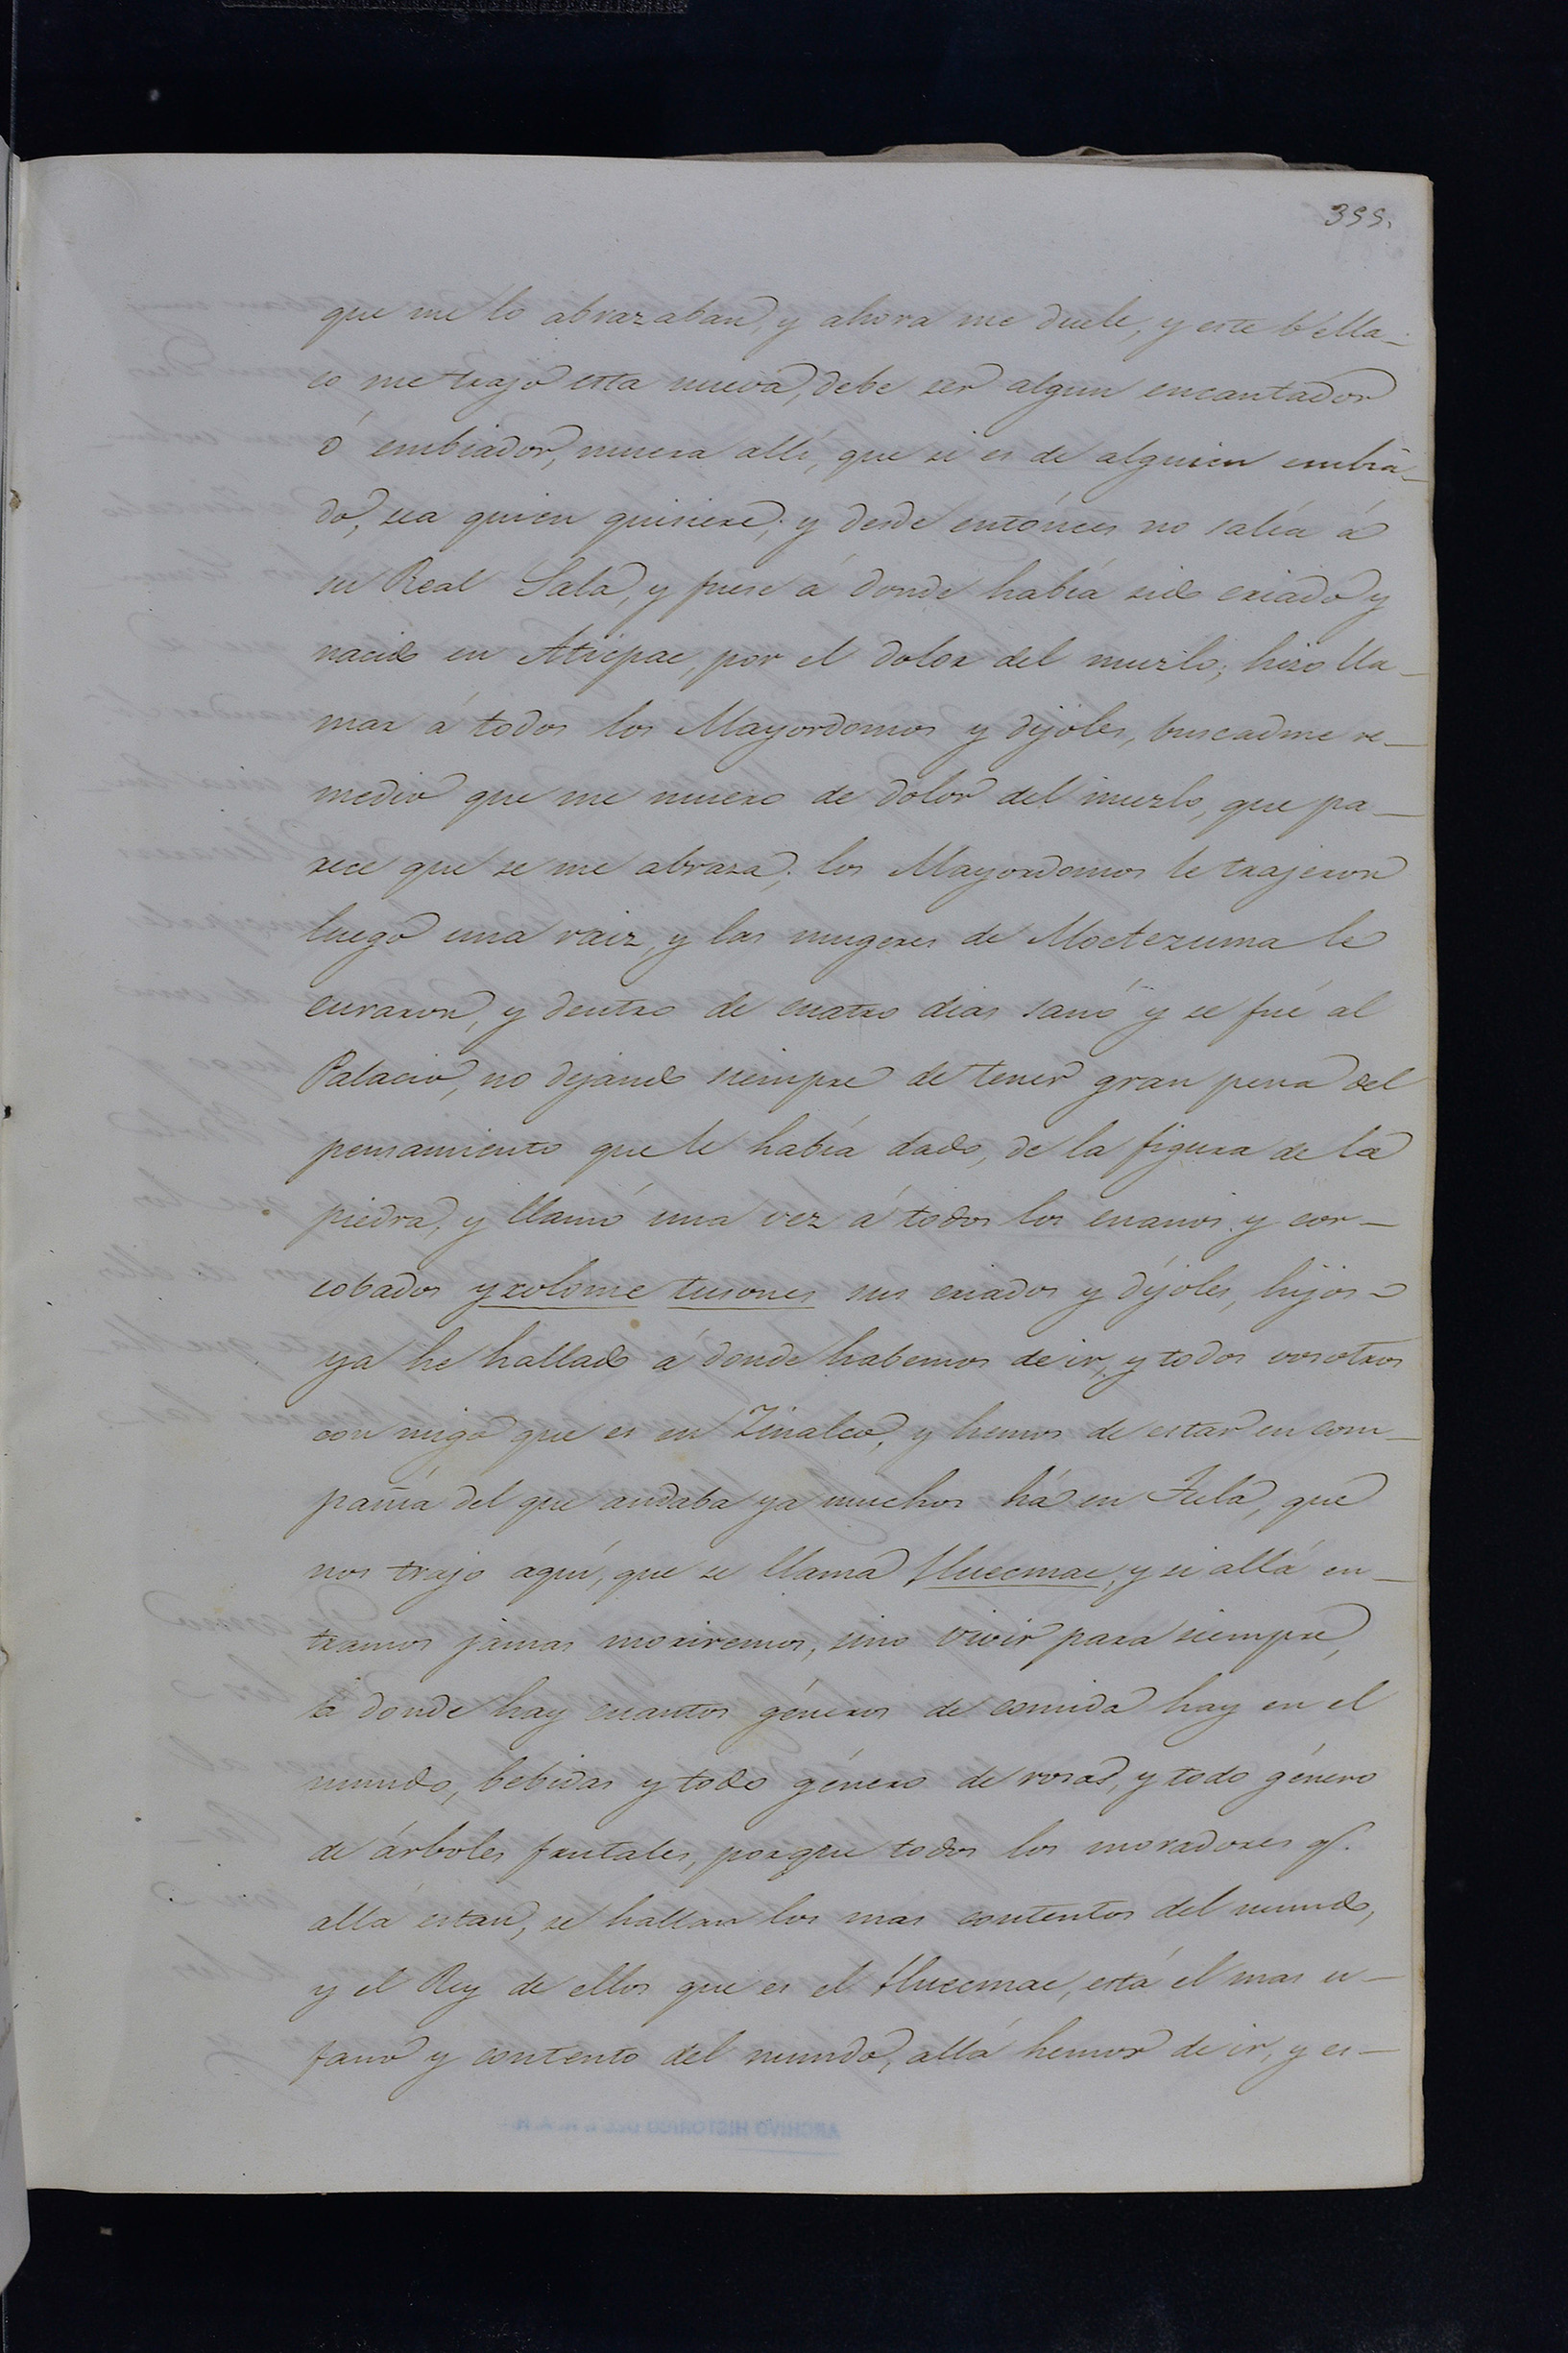 399.
que me lo abrazaban, y ahora me duele, y este bella-
co me trajo esta nueva, debe ser algun encantador
ó embiador, muera allí, que si es de alguien embia-
do, sea quien quisiere; y desde entónces no salía á
su Real Sala, y fuese á donde había sido criado y
nacido en Aticpac, por el dolor del muzlo; hizo lla-
mar á todos los Mayordomos y díjoles, buscadme re-
medio que me muero de dolor del muzlo, que pa-
rece que se me abrasa; los Mayordomos le trajeron
luego una raiz, y las mugeres de Moctezuma le
curaron, y dentro de cuatro dias sanó y se fué al
Palacio, no dejando siempre de tener gran pena del
pensamiento que le había dado, de la figura de la
piedra, y llamó una vez á todos los enanos y cor-
cobados yxolome tusones sus criados y díjoles, hijos
ya he hallado á donde habemos de ir, y todos vosotros
con migo que es en Zinalco, y hemos de estar en com-
pañía del que andaba ya muchos há en Tula, que
nos trajo aquí, que se llama Huecmac, y si allá en-
tramos jamas moriremos, sino vivir para siempre,
á donde hay cuantos géneros de comida hay en el
mundo, bebidas y todo género de rosas, y todo género
de árboles frutales, porque todos los moradores q.
allá estan, se hallan los mas contentos del mundo,
y el Rey de ellos que es el Huecmac, está el mas u-
fano y contento del mundo, allá hemos de ir, y es-